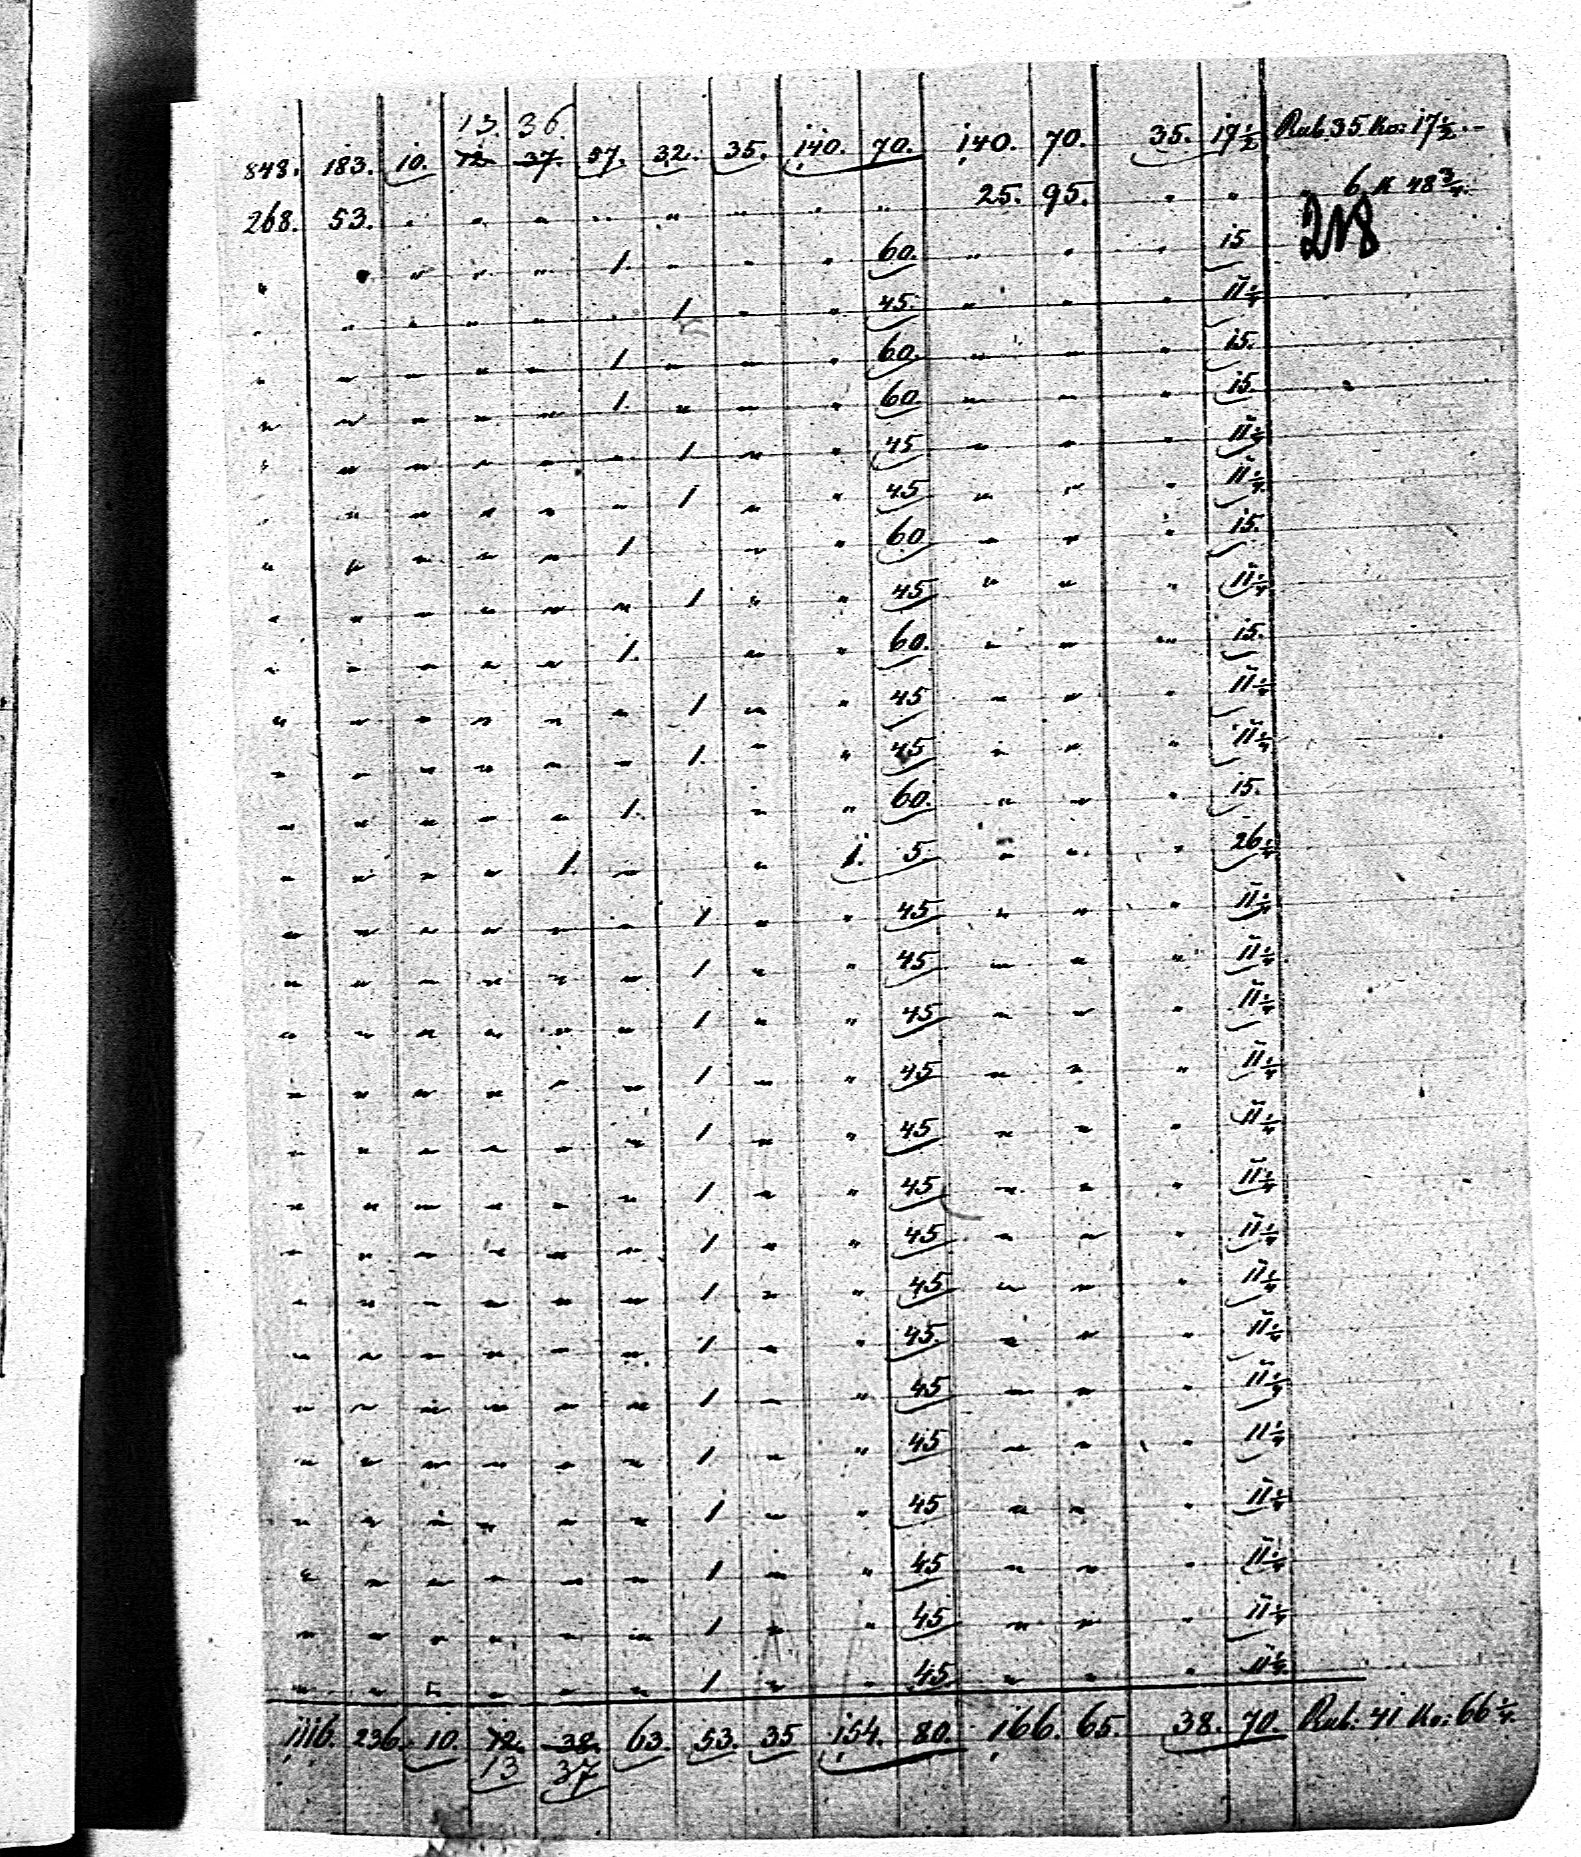 13. 36.
848. 183. 10. 12 37. 57. 32. 35. 140. 70. 140. 70. 35. 17½ Rub. 35 Ko: 17½.
268. 53. " " " " " " " " 25. 95. " " 6 K 48¾.
218
" " " " " 1. " " " 60. " " " 15
" " " " " " 1 " " 45. " " " 11¼
" " " " " 1 " " " 60. " " " 15.
" " " " " 1. " " " 60. " " " 15.
" " " " " " 1 " " 45 " " " 11¼
" " " " " " 1 " " 45 " " " 11¼
" " " " " 1 " " 60 " " " 15.
" " " " " " 1 " " 45 " " " 11¼
" " " " " 1. " " 60. " " " 15.
" " " " " " 1 " " 45 " " " 11¼
" " " " " " 1. " " 45 " " " 11¼
" " " " " 1. " " 60. " " " 15.
" " " " 1. " " 1. 5. " " " 26¼
" " " " " " 1 " " 45 " " " 11¼
" " " " " " 1 " " 45 " " " 11¼
" " " " " " 1 " " 45 " " " 11¼
" " " " " " 1 " " 45 " " " 11¼
" " " " " " 1 " " 45 " " " 11¼
" " " " " " 1 " " 45 " " " 11¼
" " " " " " 1 " " 45 " " " 11¼
" " " " " " 1 " " 45 " " " 11¼
" " " " " " 1 " " 45. " " " 11¼
" " " " " " 1 " " 45 " " " 11¼
" " " " " " 1 " " 45 " " " 11¼
" " " " " " 1 " " 45 " " " 11¼
" " " " " " 1 " " 45 " " " 11¼
" " " " " " 1 " " 45 " " " 11¼
" " " " " " 1 " " 45 " " " 11¼
1116. 236. 10. 12. 38. 63. 53. 35 154. 80. 166. 65. 38. 70. Rub: 41 Ko: 66¼.
13 37